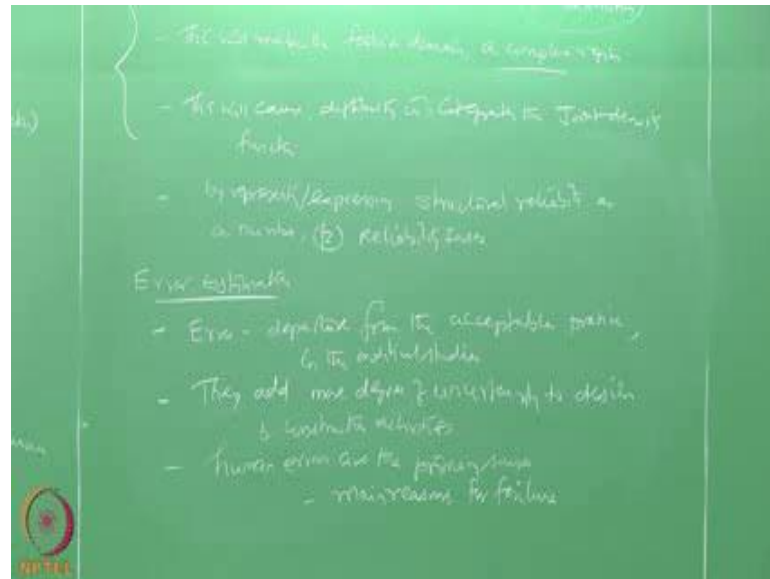 - This will make the failure domain, a complex
- This will cause difficulty in integrate the Joint density
function
- by represent/expressing structural reliability as
a number, (β) Reliability Index
Error estimate
- Error - departure from the acceptable practice,
in the
- They add more degree of uncertainty to design
& construction activities
- human error are the primary
- main reasons for failure
NPTEL